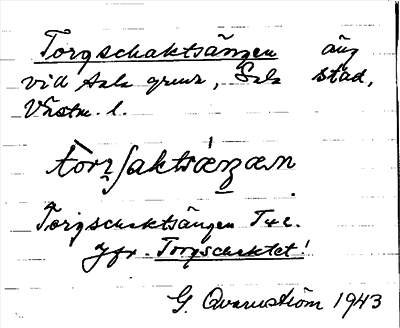 Torgschaktsängen äng
vid Sala gruva, Sala stad,
Västm. l.
Torgschaktsängen T
Jfr. Torgschaktet!
G. Qvarnström 1943